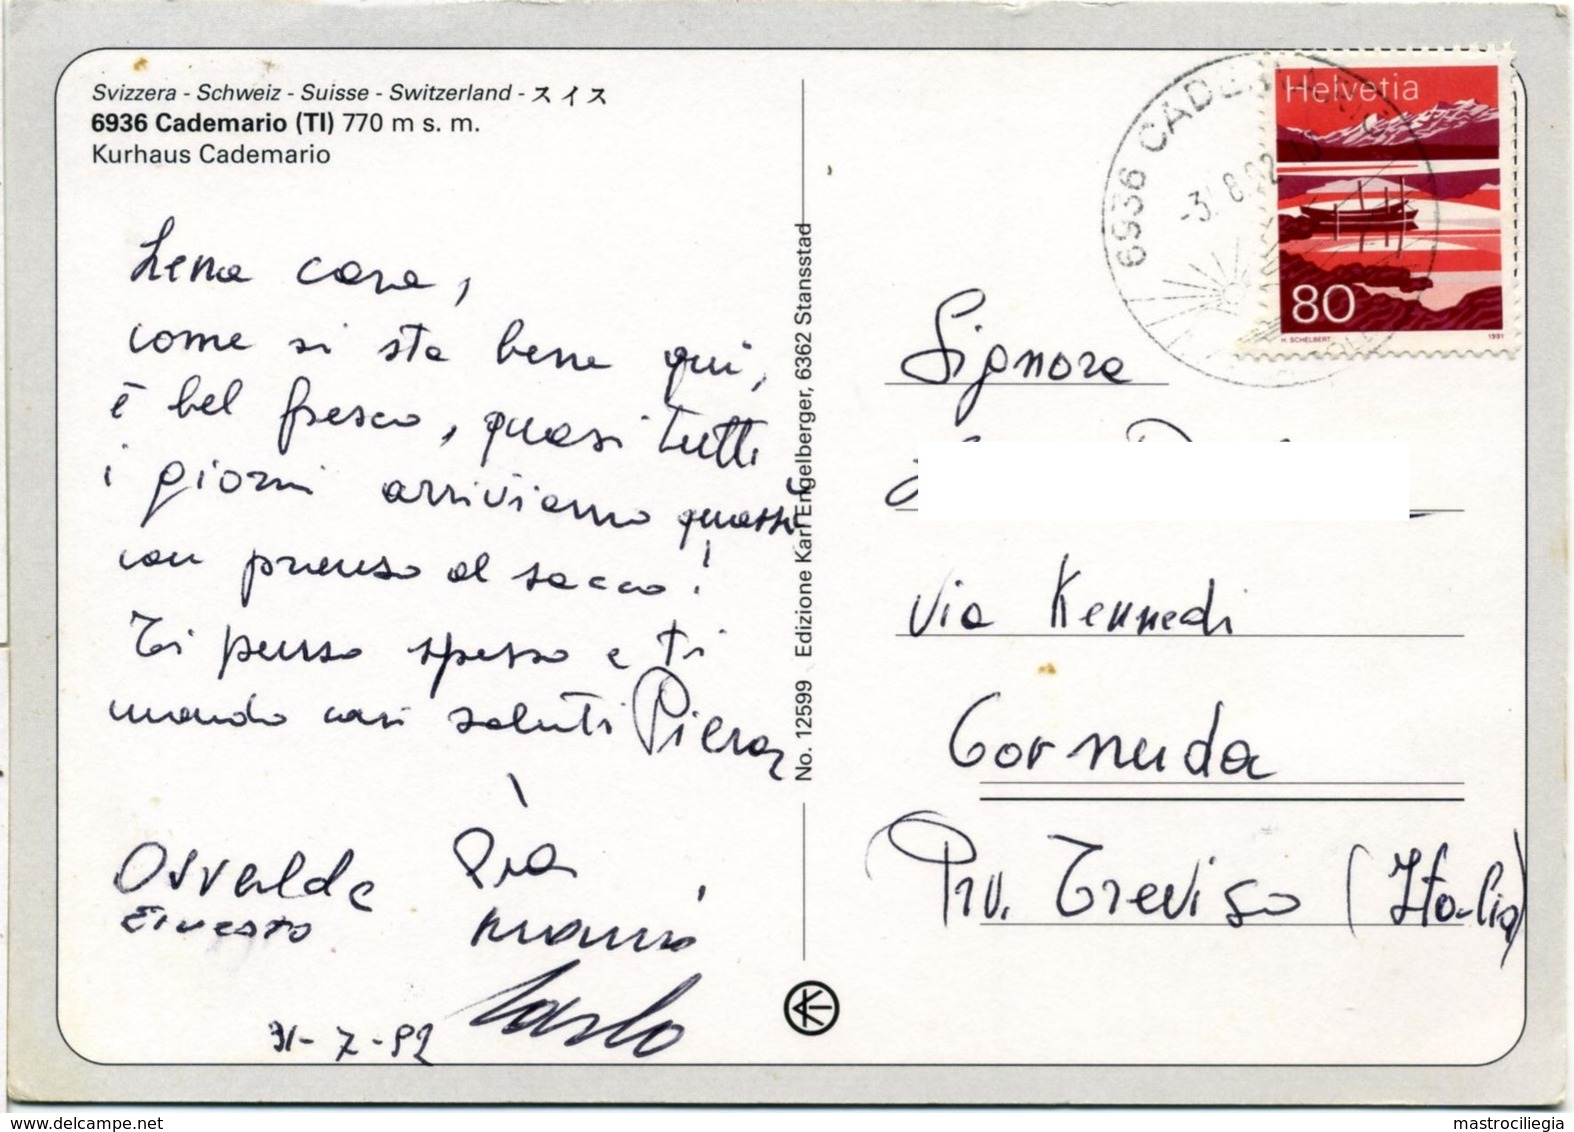 Svizzera - Schweiz - Suisse - Switzerland - スイス
6936 Cademario (TI) 770 m s. m.
Kurhaus Cademario
Lena cara,
come si sta bene qui,
è bel fresco, quasi tutti
i giorni arriviamo quassù
con pranzo al sacco!
Ti penso spesso e ti
mando cari saluti Piera
Osvalda Pia
Ernesto
Carlo
31-7-92
No. 12599 Edizione Karl Engelberger, 6362 Stansstad
6936 CADEMARIO
-3.8.92
Helvetia
80
H. SCHELBERT 1991
Signora
Via Kennedi
Cornuda
Prv. Treviso (Italia)
mastrociliegia